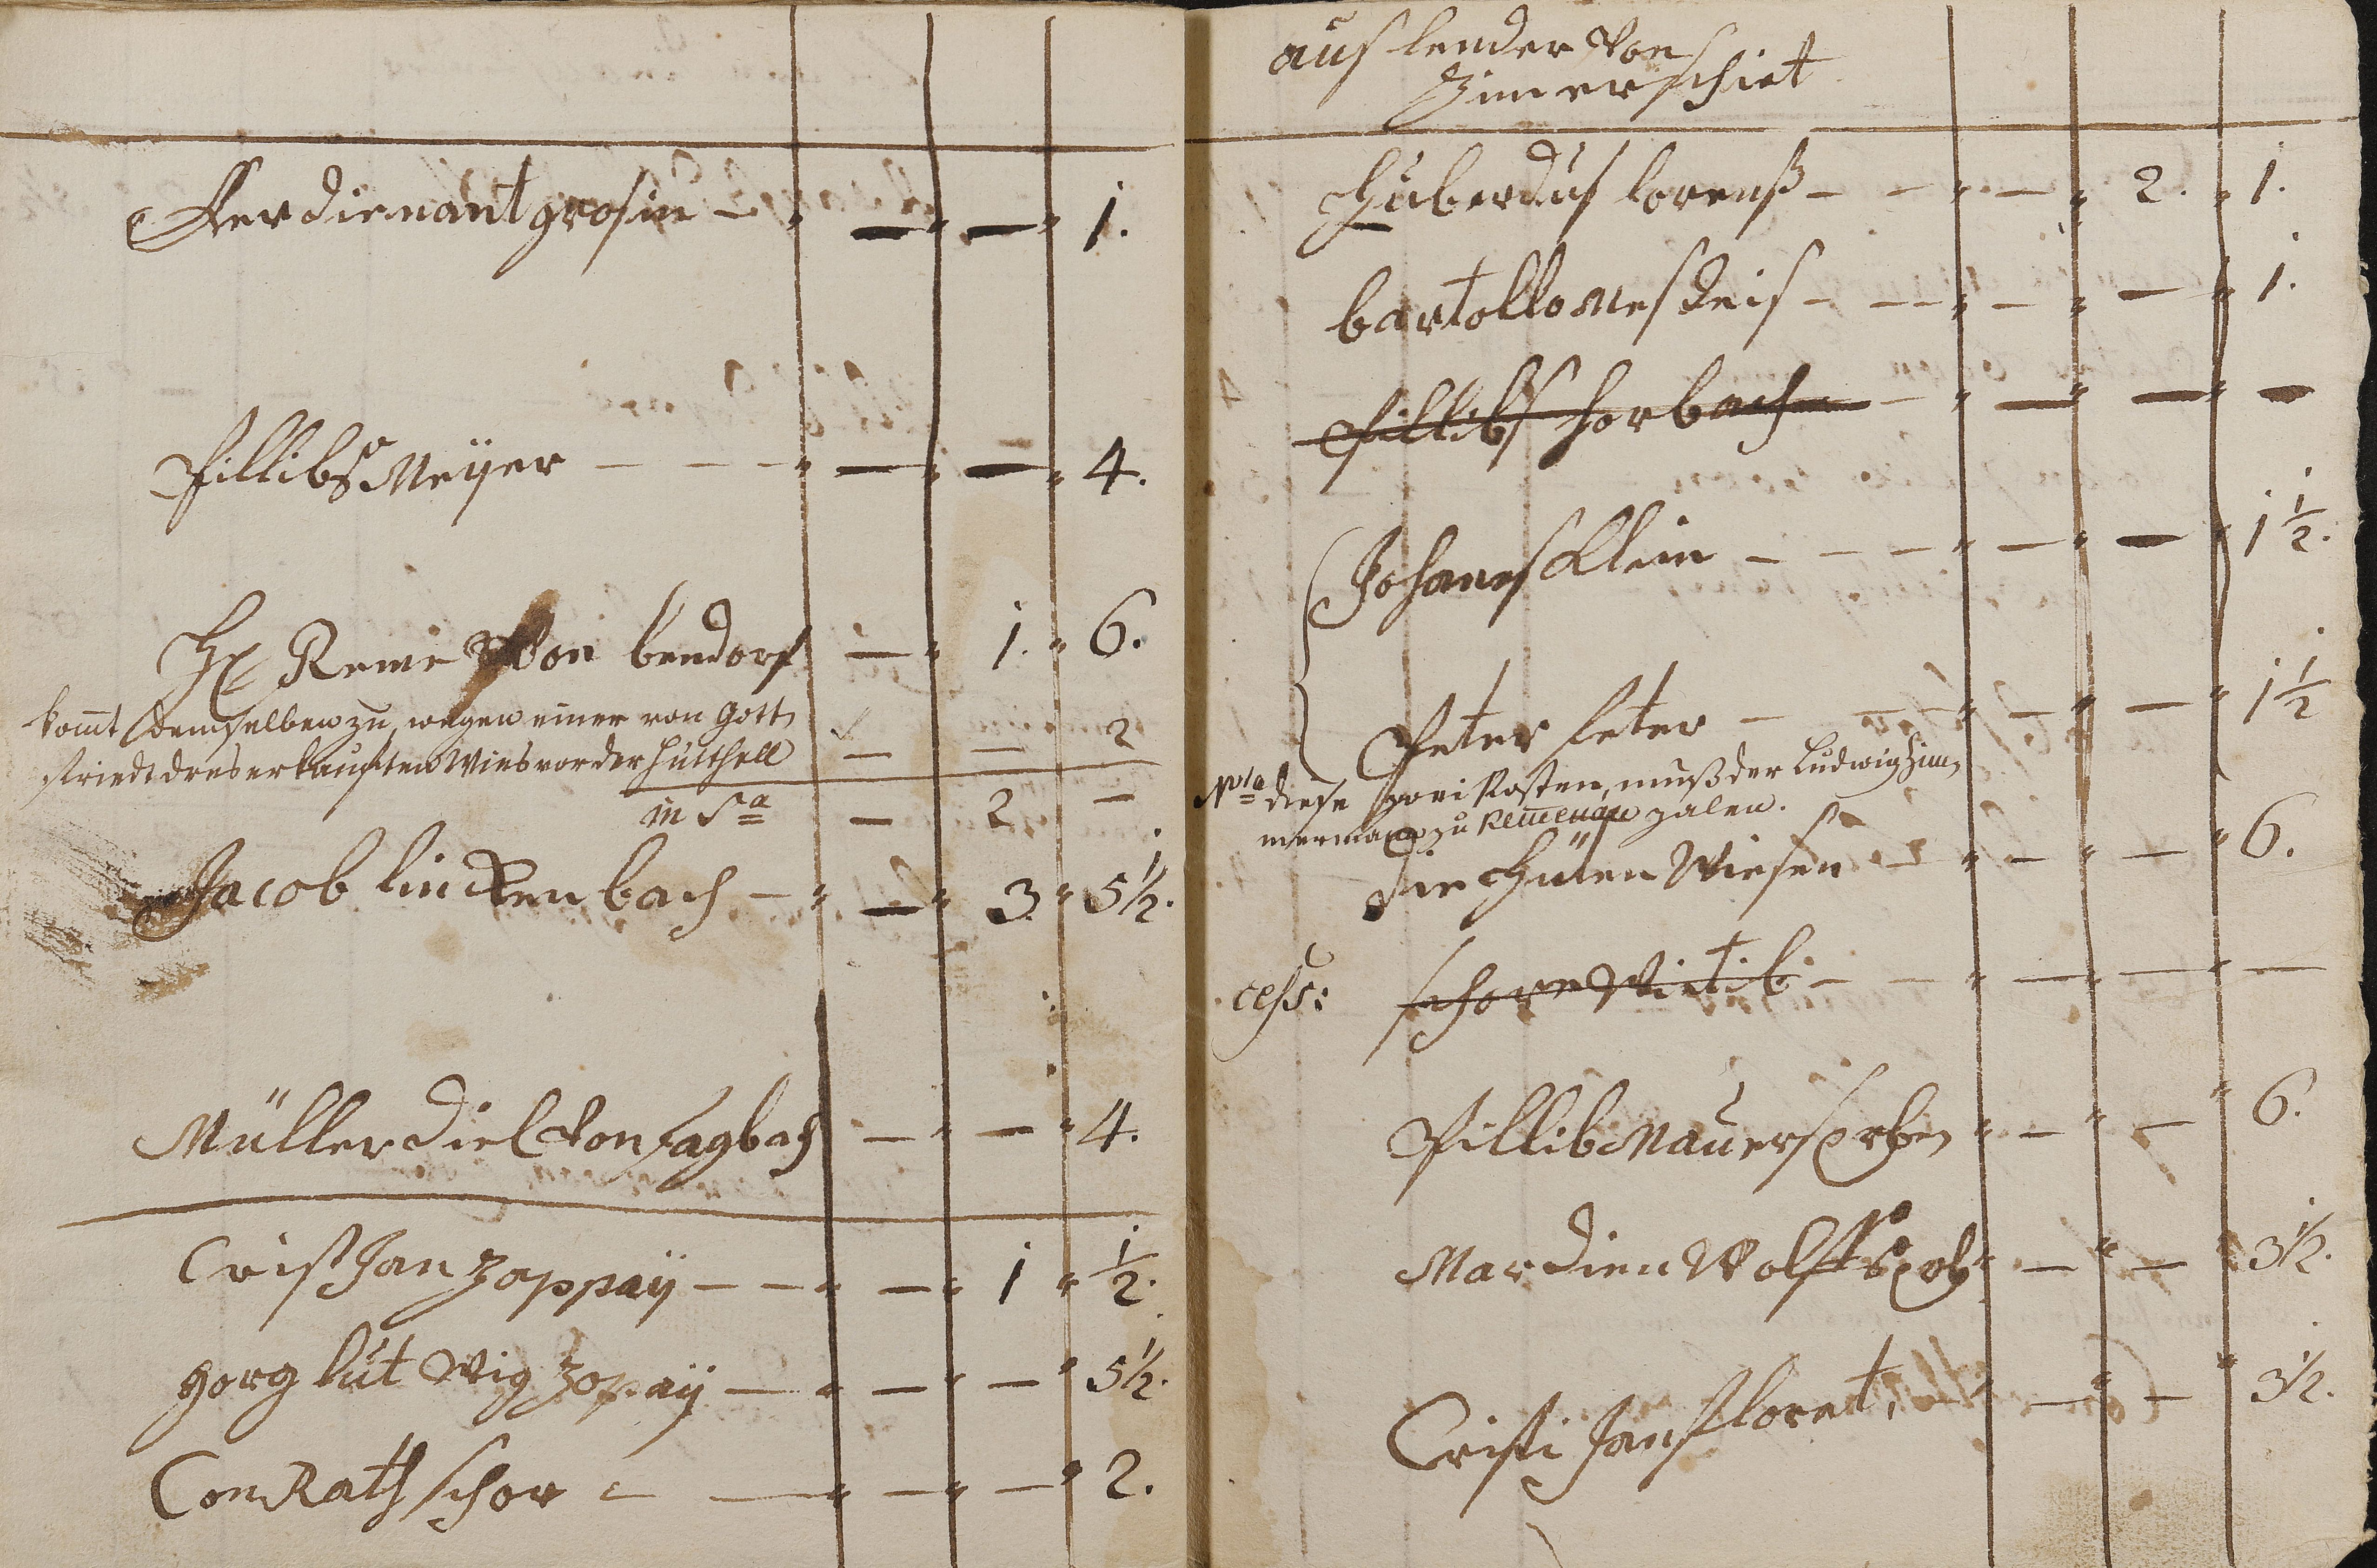 Ferdienant grosin — — — 1.
Pillibs Meÿer — — — 4.
H Remi Von bendorf — 1. 6.
komt demselben zu, wegen einer von Gott,
friedt dres erkauften Wies vor der Hutthell — — 2
in Sa — 2. —
Jacob linckenbach — — 3. 5½.
Müller Diel Von fagbach — — 4.
Cristian Zoppaÿ — — 1 ½.
gorg lut Wig Zopaÿ — — — 5½.
ConRath schor — — — 2.
aus lender Von
Zimerschiet
Huberdus lorenß — — — 2. 1.
bartollomes deis — — — — 1.
Pillibs horbach — — — —
Johanes Klein — — — — 1½.
Peter feter — — — — 1½
Nta diese zwei Posten, muß der Ludwig Zim,
merman zu Kemenau zalen.
die Hüten Wiesen — — — 6.
cess: schore Witib — — — —
Pillib Mauers erben — — 6.
Mardien Wolffs erb — — 3½.
Cristi Jans floret — — 3½.